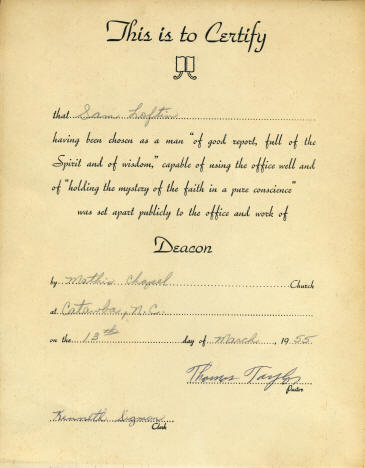 This is to Certify
that Sam Loftin
having been chosen as a man "of good report, full of the
Spirit and of wisdom," capable of using the office well and
of "holding the mystery of the faith in a pure conscience"
was set apart publicly to the office and work of
Deacon
by Mathis Chapel Church
at Catawba, N.C.
on the 13th day of March, 1955.
Thomas Taylor
Pastor
Kenneth Sigmon
Clerk